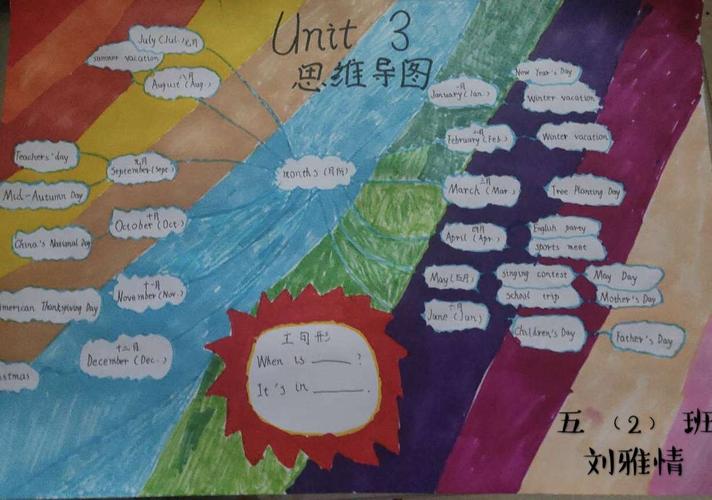 Unit 3
思维导图
July (Jul. 七月
summer vacation
八月
August (Aug.)
Teachers' day
九月
September (Sept.)
Mid-Autumn Day
十月
October (Oct.)
China's National Day
十一月
November (Nov.)
American Thanksgiving Day
十二月
December (Dec.)
istmas
months (月份)
一月
January (Jan.)
New Year's Day
Winter vacation
二月
February (Feb.)
Winter vacation
三月
March (Mar.)
Tree Planting Day
四月
April (Apr.)
English party
sports meet
May (五月)
singing contest
school trip
May Day
Mother's Day
六月
June (Jun)
Children's Day
Father's Day
句形
When is ____?
It's in ____.
五 (2) 班
刘雅情